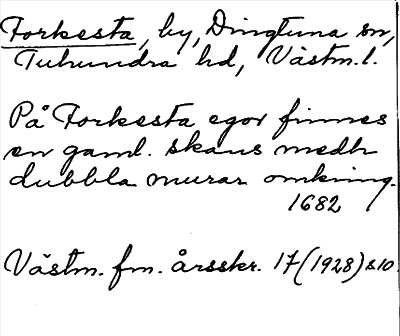 Forkesta, by, Dingtuna sn,
Tuhundra hd, Västm. l.
På Forkesta egor finnes
en gaml. skans medh
dubbla murar omkring.
1682
Västm. fm. årsskr. 17 (1928) s. 10.